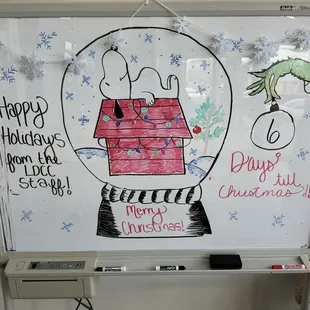 Happy
Holidays
from the
LDCC
Staff!
Merry
Christmas!
6
Days till
Christmas!!